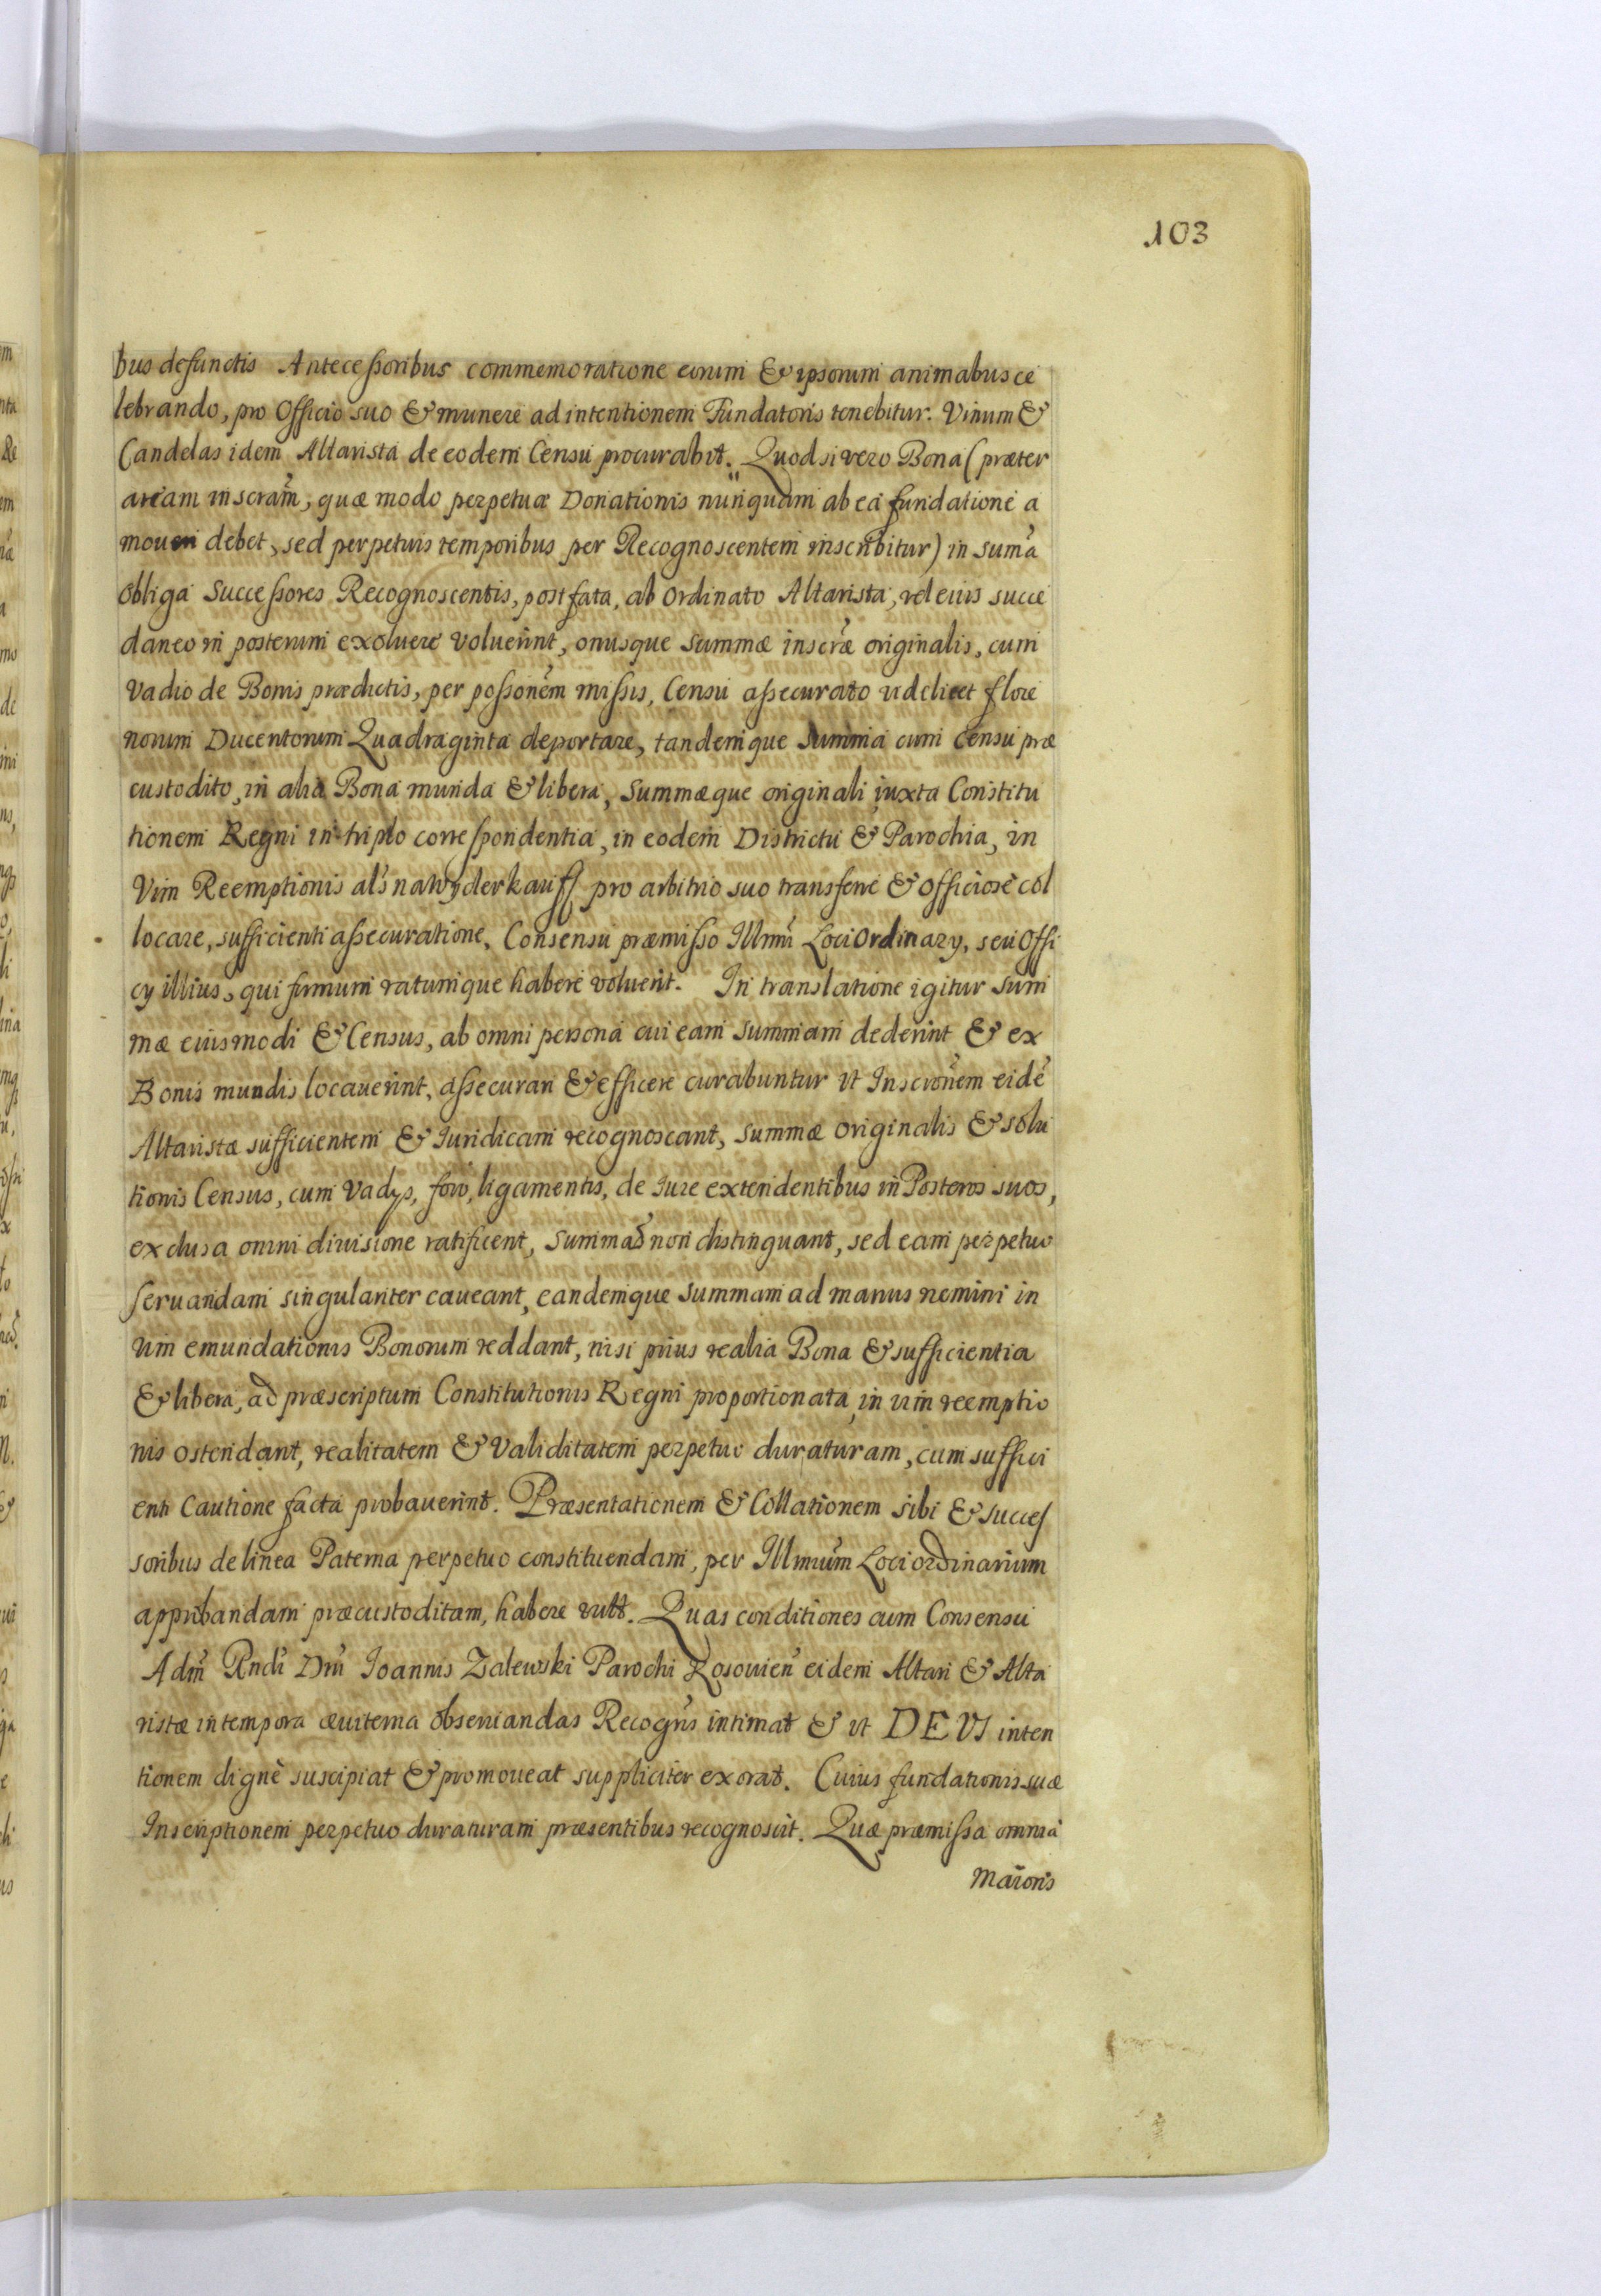 103
bus defunctis Antecessoribus commemoratione eorum & ipsorum animabus ce
lebrando, pro Officio suo & munere ad intentionem Fundatoris tenebitur. Vinum &
Candelas idem Altarista de eodem Censu procurabit. Quod si vero Bona (præter
aream inscram̃, quæ modo perpetuæ Donationis nunquam ab ea fundatione a
moueri debet, sed perpetuis temporibus per Recognoscentem inscribitur) in sum̃a
obliga Successores Recognoscentis, post fata, ab Ordinato Altarista, vel eius succe
daneo in posterum exoluere voluerint, onusque Summæ inscræ̃ originalis, cum
vadio de Bonis prædictis, per possionẽm missis, Censu assecurato videlicet flore
norum Ducentorum Quadraginta deportare, tandemque summa cum censu præ
custodito, in alia Bona munda & libera, Summæque originali iuxta Constitu
tionem Regni in triplo correspondentia, in eodem Districtu & Parochia, in
Vim Reemptionis al̃s na Wyderkauff pro arbitrio suo transferre & Officiose col
locare, sufficienti assecuratione, Consensu præmisso Illmi Loci Ordinary, seu Offi
cy illius, qui firmum ratumque habere voluerit. In translatione igitur sum
mæ eiusmodi & Census, ab omni persona cui eam summam dederint & ex
Bonis mundis locauerint, assecurari & efficere curabuntur vt Inscronẽm eidẽ
Altaristæ sufficientem & Iuridicam recognoscant, summæ originalis & solu
tionis Census, cum Vadys, foro, ligamentis, de Iure extendentibus in Posteros suos,
exclusa omni diuisione ratificent, Summas non distinguant, sed eam perpetuo
seruandam singulariter caueant, eandemque Summam ad manus nemini in
vim emundationis Bonorum reddant, nisi prius realia Bona & sufficientia
& libera, ad præscriptum Constitutionis Regni proportionata, in vim reemptio
nis ostendant, realitatem & Validitatem perpetuo duraturam, cum suffici
enti Cautione facta probauerint. Præsentationem & Collationem sibi & succes
soribus de linea Paterna perpetuo constituendam, per Illmum̃ Loci ordinarium
approbandam præcustoditam, habere vult. Quas conditiones cum Consensu
Adm̃ Rndi Dni Ioannis Zalewski Parochi Kosouien̄ eidem Altari & Alta
ristæ in tempora æuiterna obseruandas Recogñs intimat & vt DEVS inten
tionem dignè suscipiat & promoueat suppliciter exorat. Cuius fundationis suæ
Inscriptionem perpetuo duraturam præsentibus recognoscit. Quæ præmissa omnia
Maioris